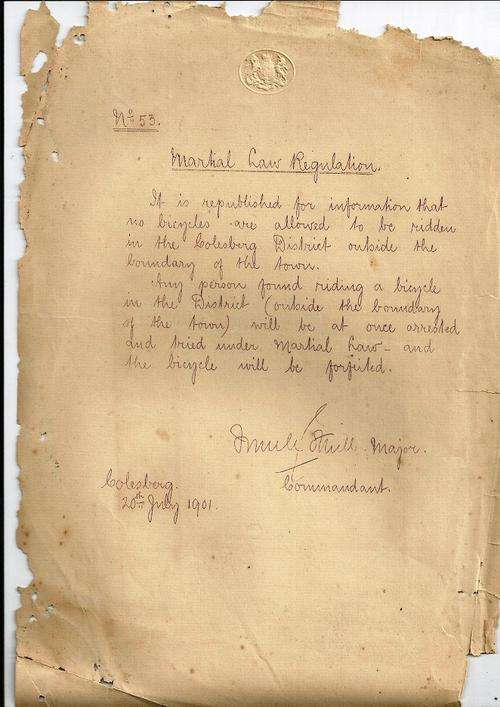 No 53.
Martial Law Regulation.
It is republished for information that
no bicycles are allowed to be ridden
in the Colesberg District outside the
boundary of the town.
Any person found riding a bicycle
in the District (outside the boundary
of the town) will be at once arrested
and tried under Martial Law - and
the bicycle will be forfeited.
Major.
Commandant.
Colesberg.
20th July 1901.